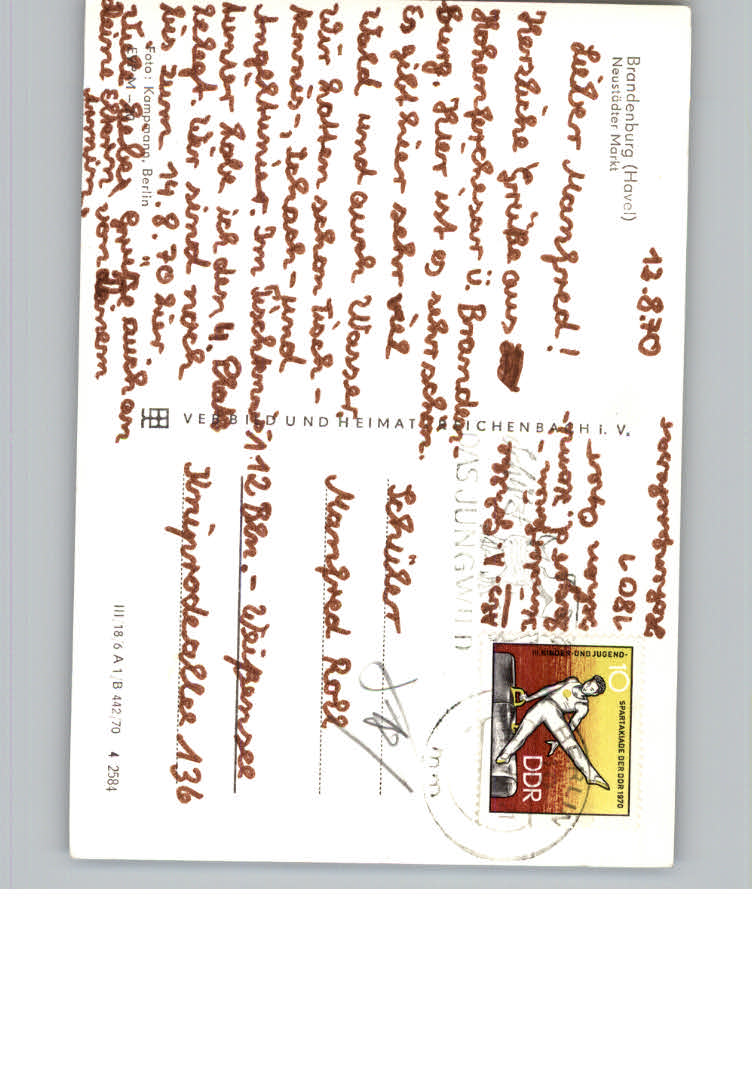 Brandenburg (Havel)
Neustädter Markt
13.8.70
Lieber Manfred!
Herzliche Grüße aus
Hohenferchesar ü. Branden-
burg. Hier ist es sehr schön.
Es gibt hier sehr viel
Wald und auch Wasser.
Wir hatten schon Tisch-
tennis-, Schach- und
Angelturnier. Im Tischtennis
turnier habe ich den 4. Platz
belegt. Wir sind noch
bis zum 14.8.70 hier
Viele liebe Grüße auch an
Deine Eltern von Deinem
Foto: Kampmann, Berlin
EVP M
VEB BILD UND HEIMAT REICHENBACH i. V.
1801
DAS JUNGWILD
III. KINDER- UND JUGEND-
SPARTAKIADE DER DDR 1970
10
DDR
Schüler
Manfred Roll
112 Bln.-Weißensee
Kniprodeallee 136
III/18/6 A 1/B 442/70 4 2584